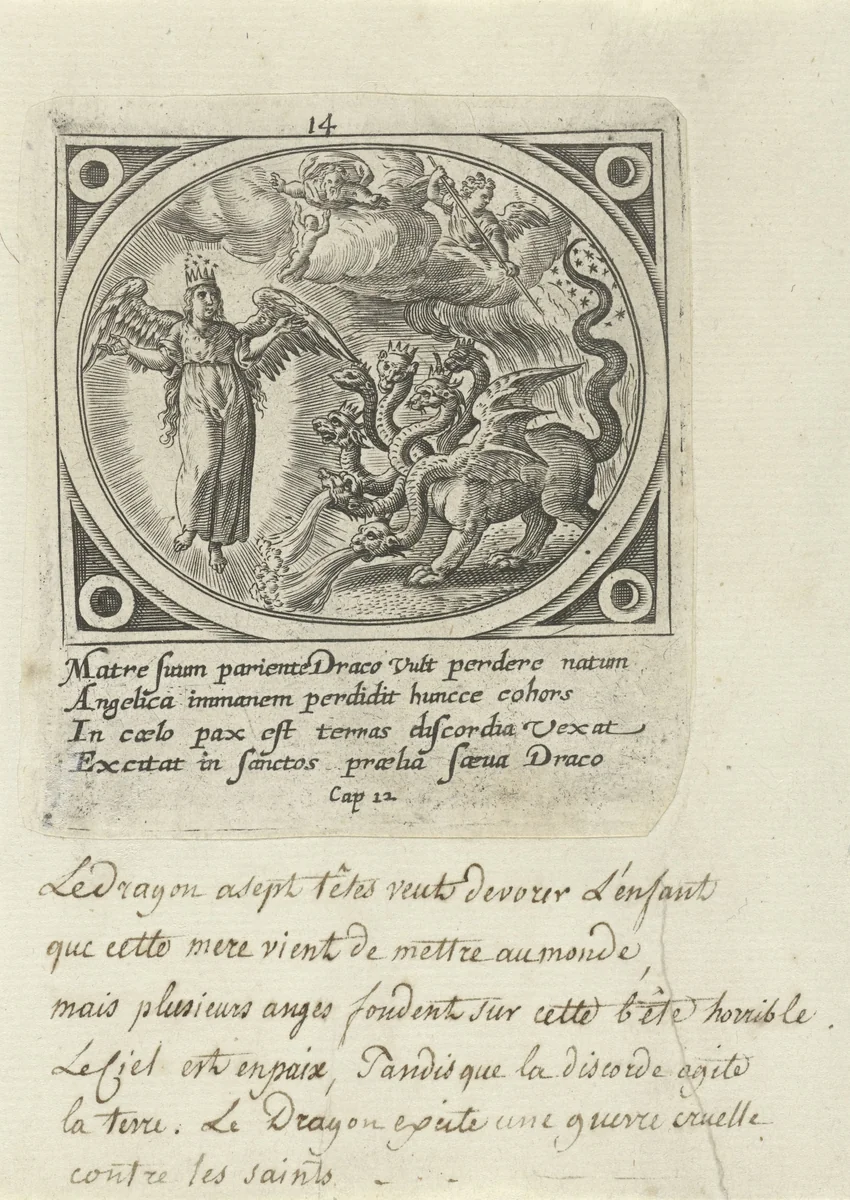 14
Matre suum pariente Draco Vult perdere natum
Angelica immanem perdidit huncce cohors
In cœlo pax est terras discordia Vexat
Excitat in sanctos prælia sæva Draco
Cap 12
Le Dragon a sept têtes veut devorer L'enfant
que cette mere vient de mettre au monde,
mais plusieurs anges fondent sur cette bête horrible.
Le Ciel est en paix, Tandis que la discorde agite
la terre. Le Dragon excite une guerre cruelle
contre les saints - . -